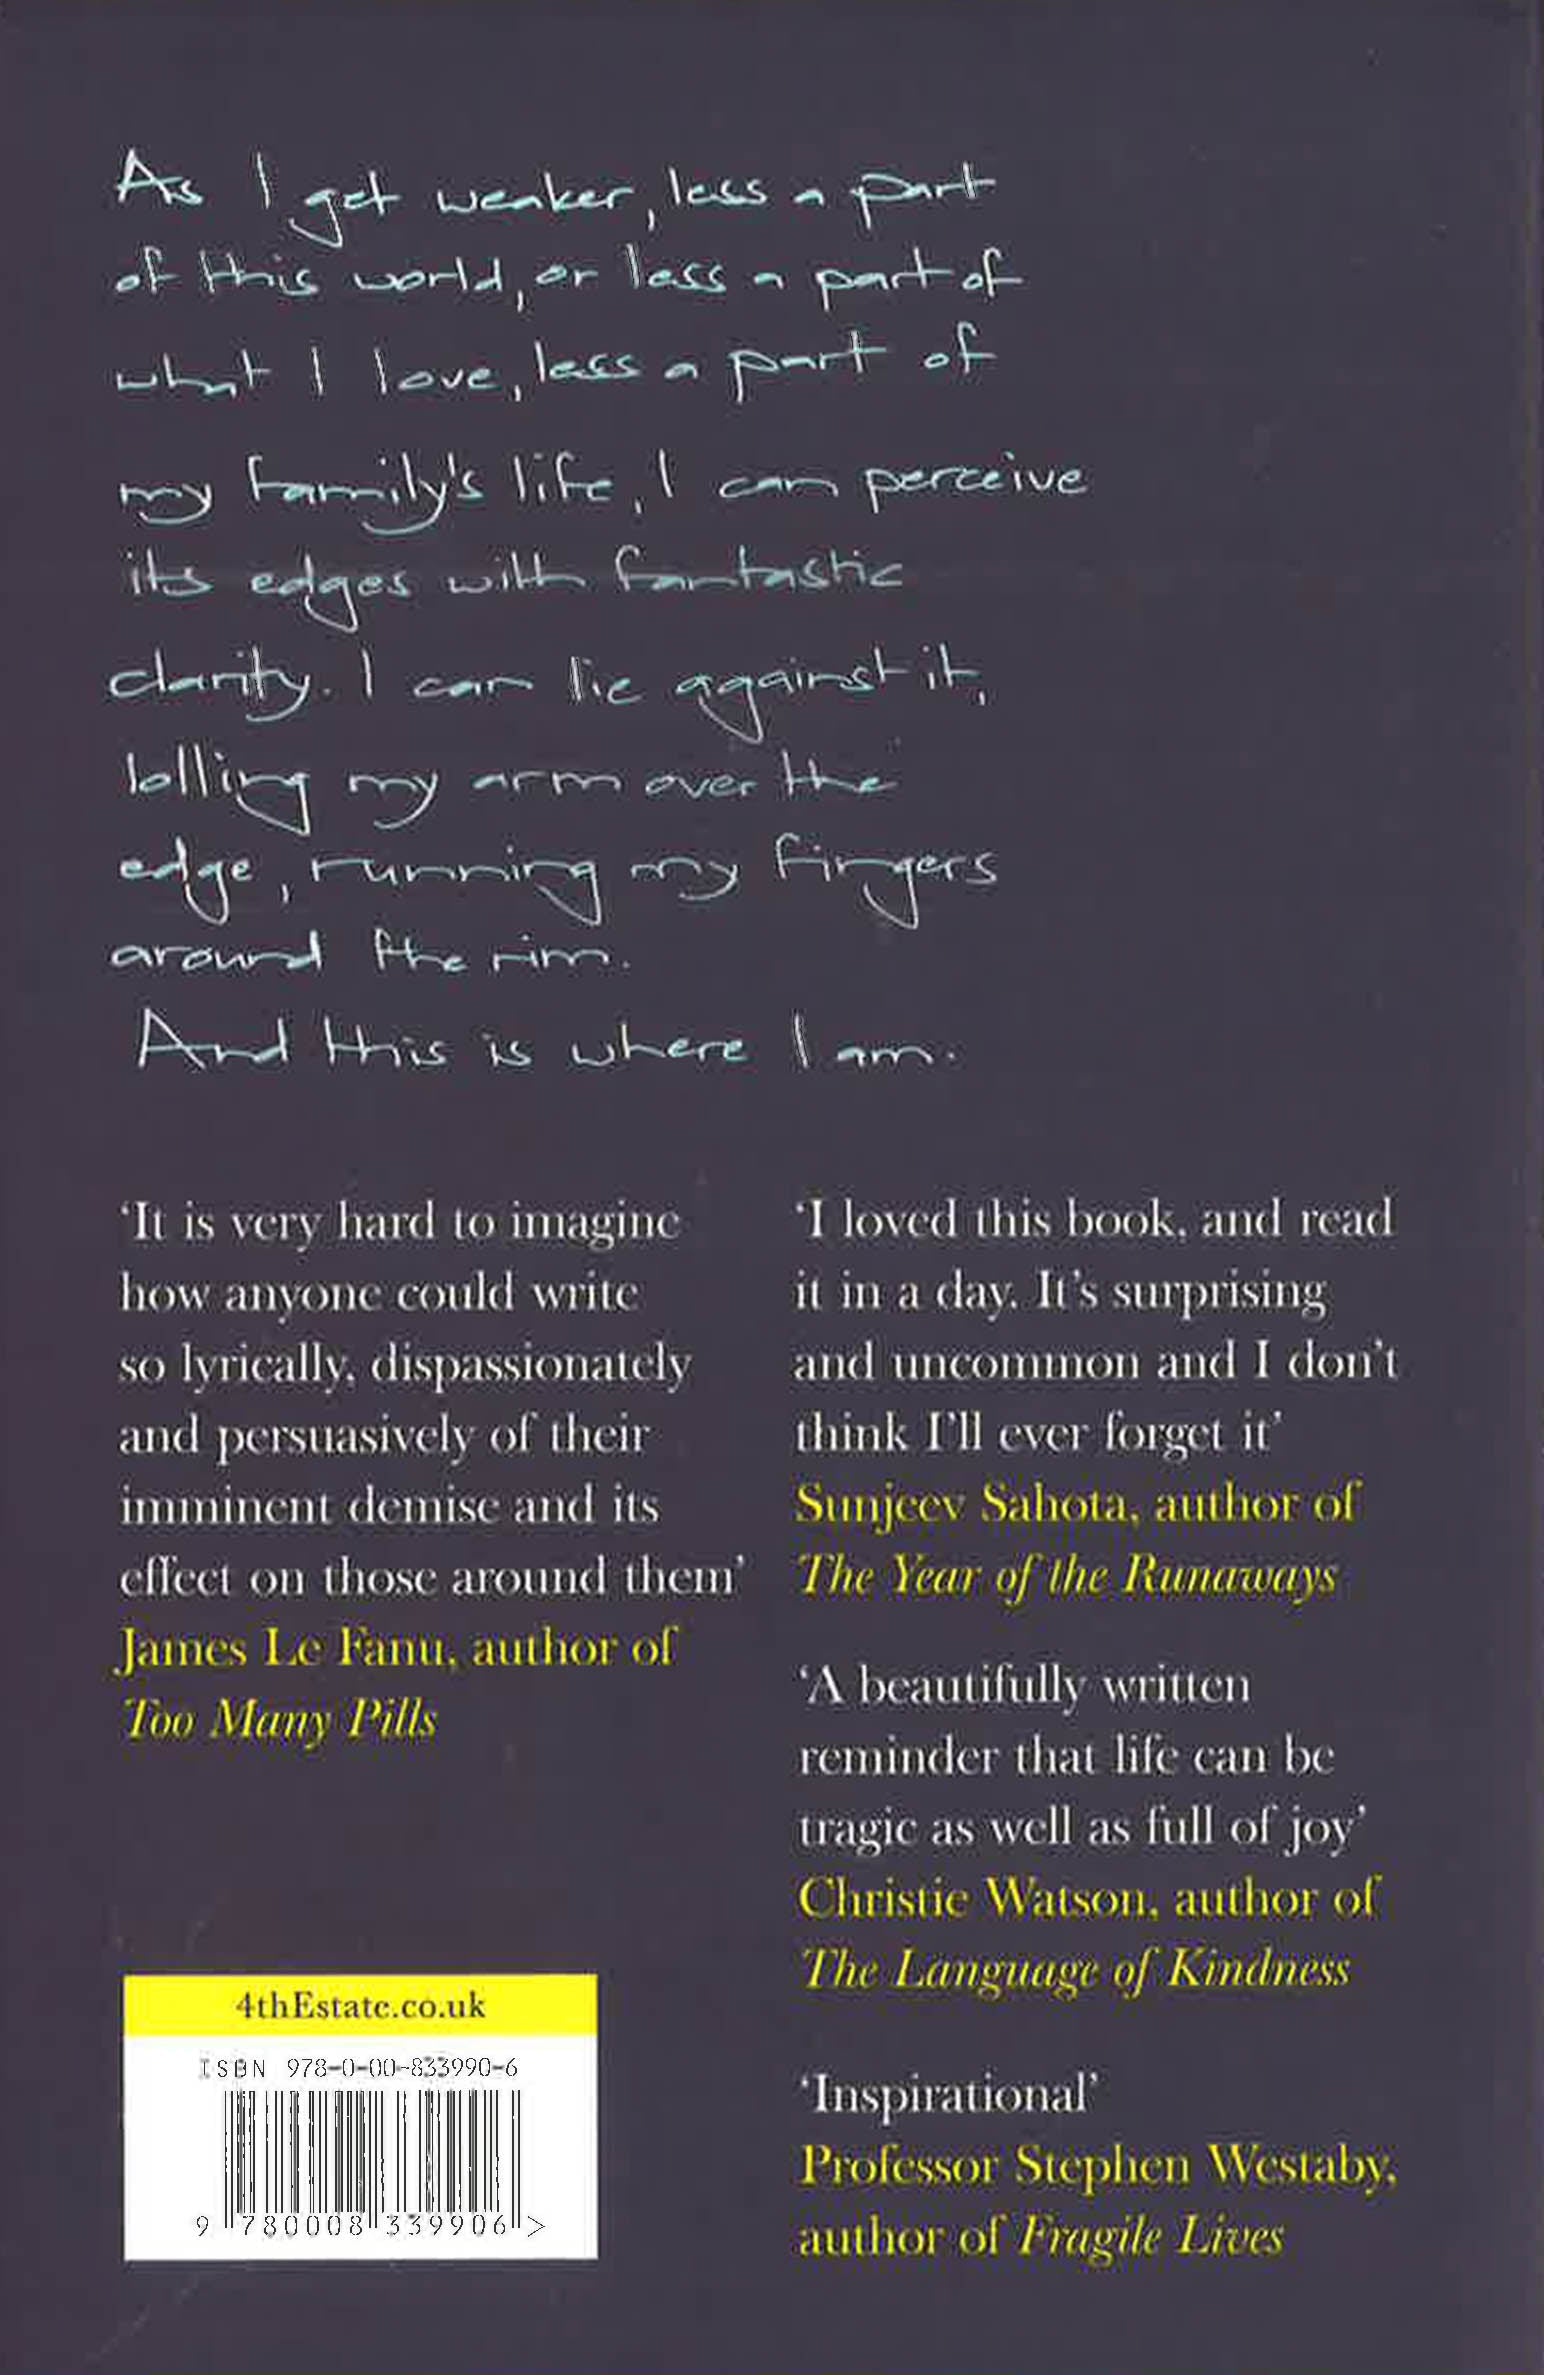 As I get weaker, less a part
of this world, or less a part of
what I love, less a part of
my family's life, I can perceive
its edges with fantastic
clarity. I can lie against it,
lolling my arm over the
edge, running my fingers
around the rim.
And this is where I am.
‘It is very hard to imagine
how anyone could write
so lyrically, dispassionately
and persuasively of their
imminent demise and its
effect on those around them’
James Le Fanu, author of
Too Many Pills
‘I loved this book, and read
it in a day. It’s surprising
and uncommon and I don’t
think I’ll ever forget it’
Sunjeev Sahota, author of
The Year of the Runaways
‘A beautifully written
reminder that life can be
tragic as well as full of joy’
Christie Watson, author of
The Language of Kindness
‘Inspirational’
Professor Stephen Westaby,
author of Fragile Lives
4thEstate.co.uk
ISBN 978-0-00-833990-6
9 780008 339906 >